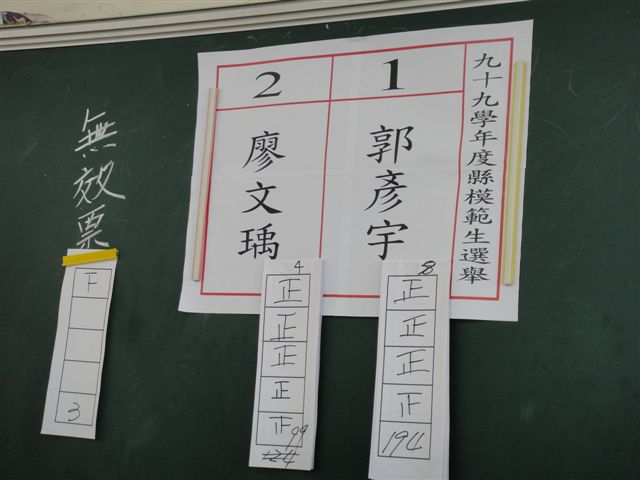 九十九學年度縣模範生選舉
1
郭彥宇
2
廖文瑀
無效票
8
正
正
正
194
4
正
正
正
正
99
3